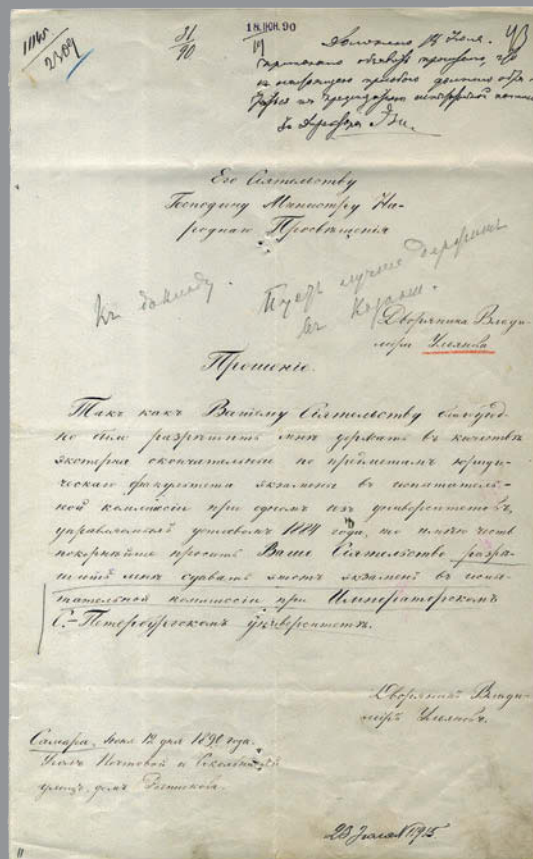 11145
2309
31
90
18 ІЮН. 90
Доложено 14 Іюля.
Его Сіятельству
Господину Министру На-
роднаго Просвѣщенія
Къ докладу.
Пусть лучше держитъ
въ Казани.
Дворянина Влади-
міра Ульянова
Прошеніе.
Такъ какъ Вашему Сіятельству благоугод-
но было разрѣшить мнѣ держать въ качествѣ
экстерна окончательные по предметамъ юриди-
ческаго факультета экзамены въ испытатель-
ной коммиссіи при одномъ изъ университетовъ,
управляемыхъ уставомъ 1884 года, то имѣю честь
покорнѣйше просить Ваше Сіятельство разрѣ-
шить мнѣ сдавать этотъ экзаменъ въ испы-
тательной коммиссіи при Императорскомъ
С.-Петербургскомъ университетѣ.
Дворянинъ Влади-
міръ Ульяновъ.
Самара, 12 дня 1890 года.
Уголъ Почтовой и Сокольничьей
улицъ, домъ Рытикова.